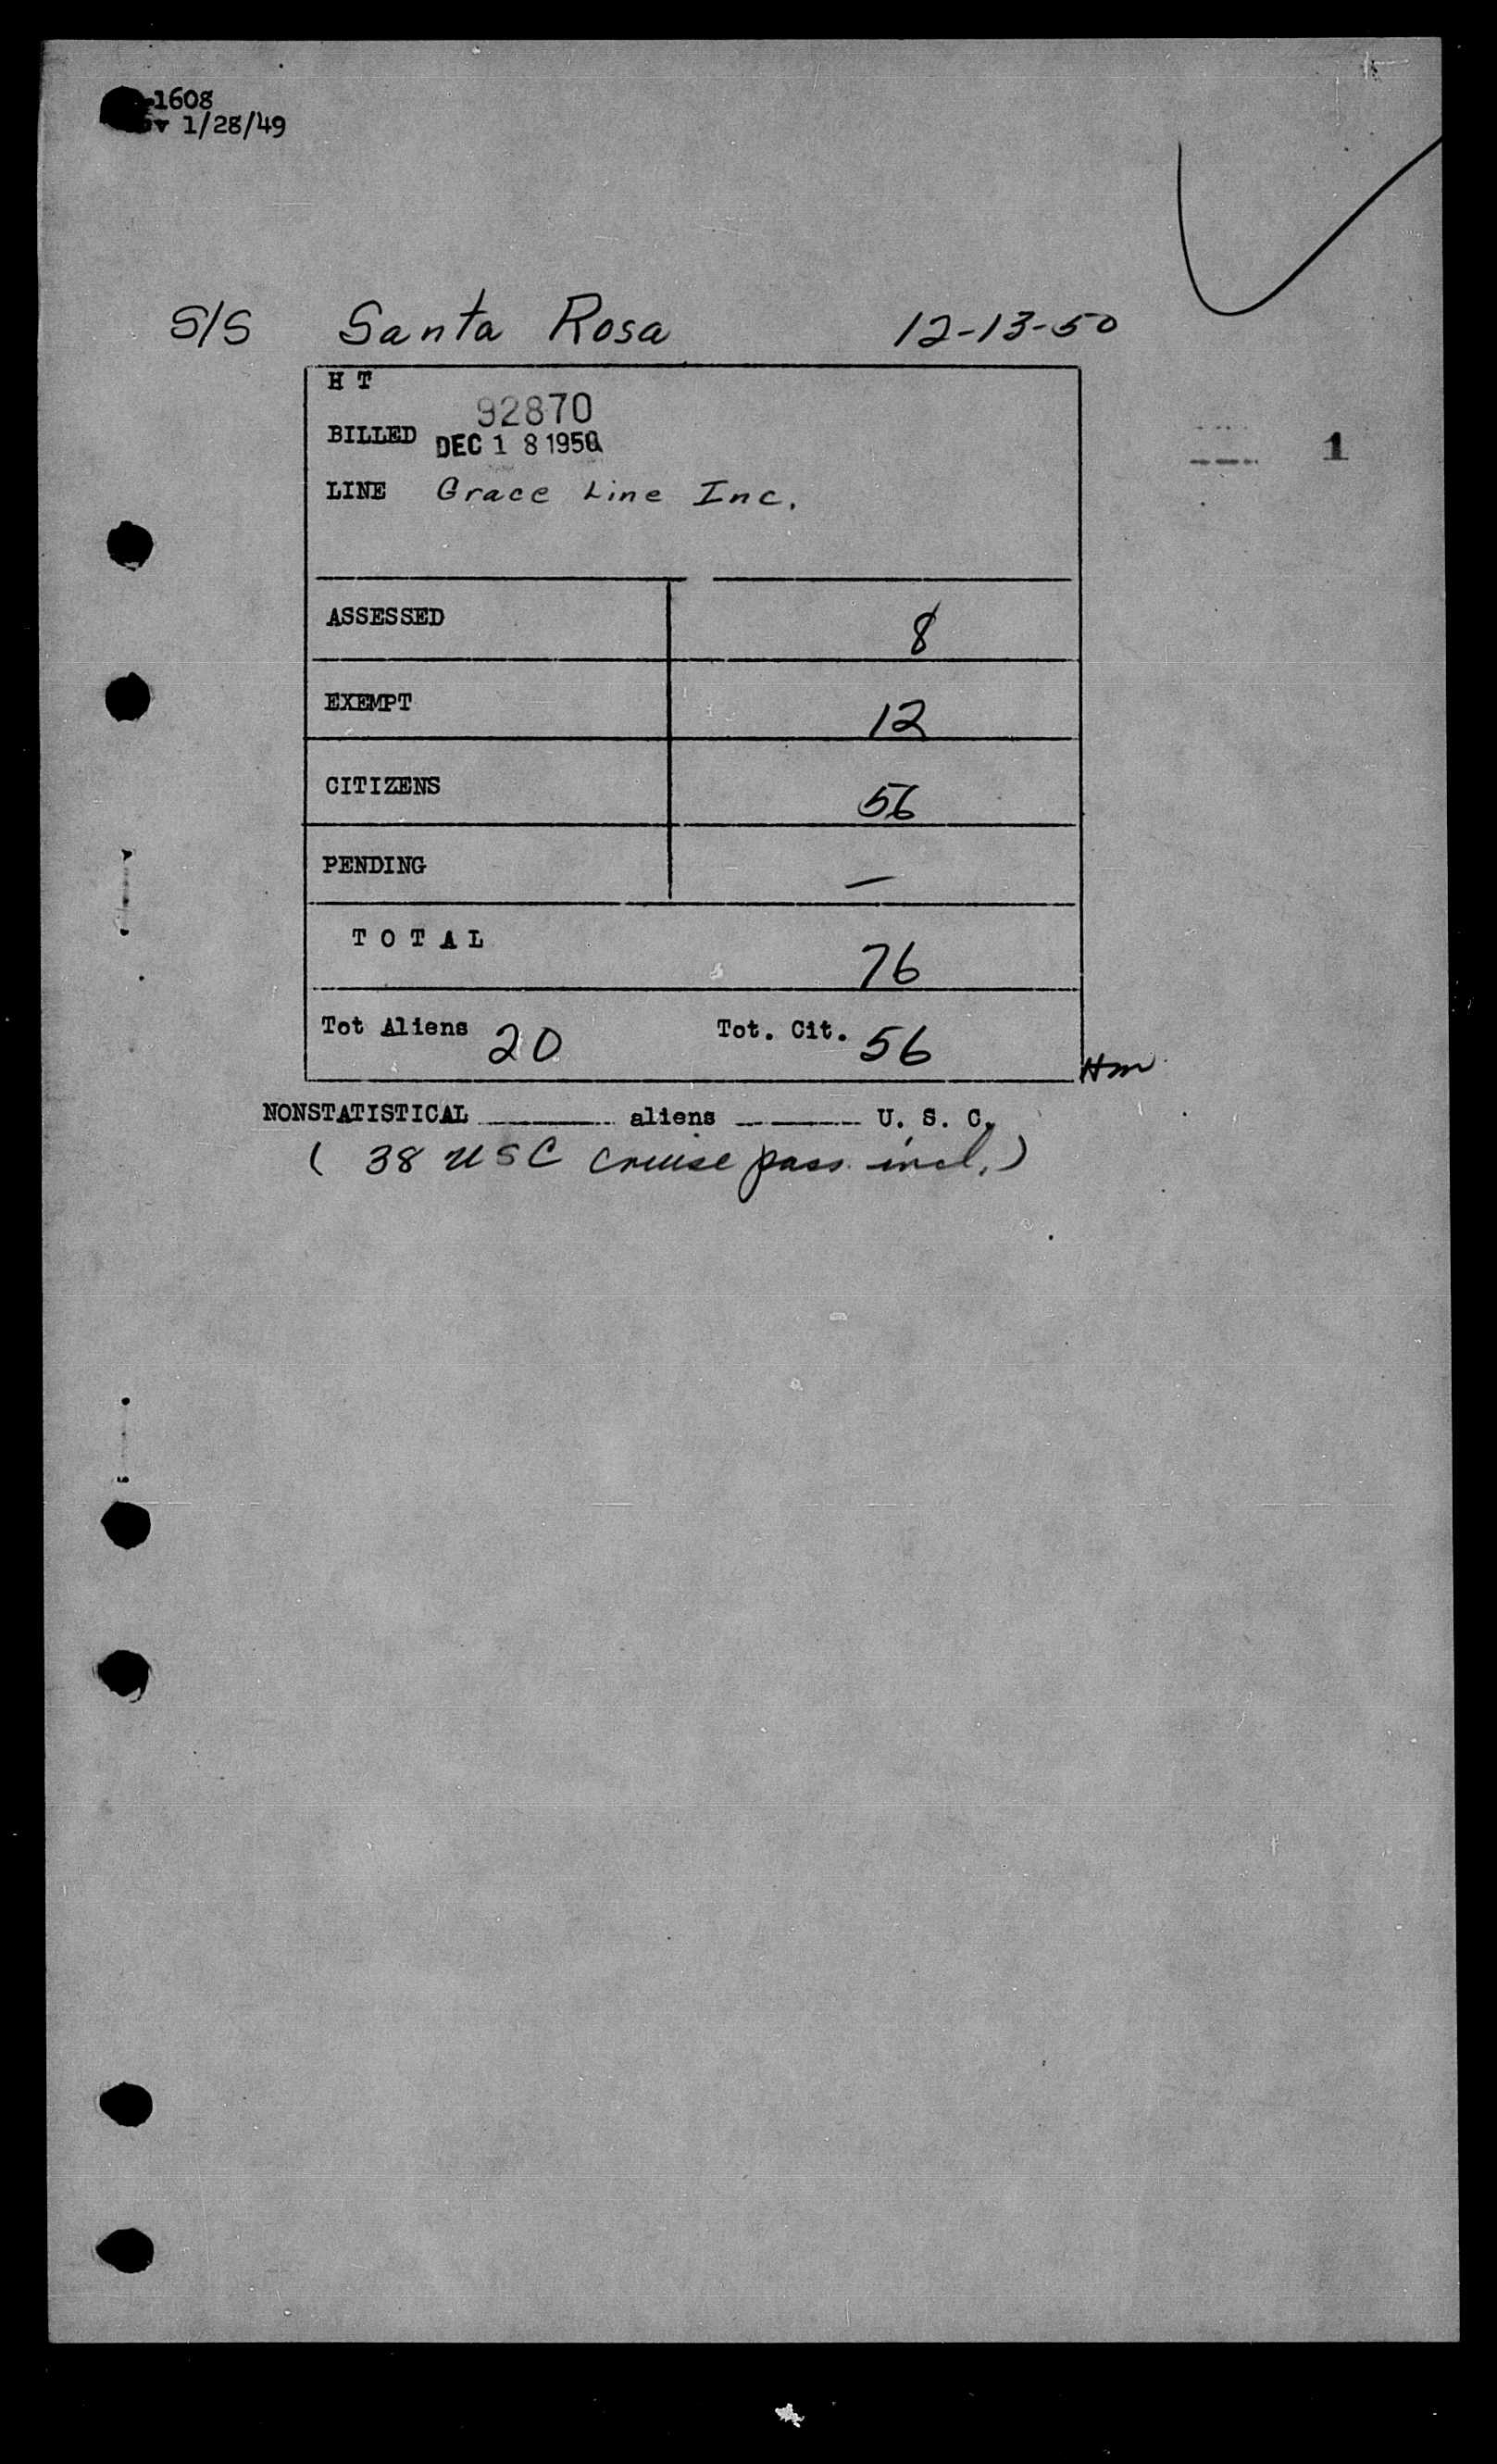 1608
1/28/49
S/S Santa Rosa 12-13-50
H T
92870
BILLED DEC 18 1950
1
LINE Grace Line Inc.
ASSESSED 8
EXEMPT 12
CITIZENS 56
PENDING —
T O T A L 76
Tot Aliens 20 Tot. Cit. 56
Hm
NONSTATISTICAL ______ aliens ______ U. S. C.
( 38 USC cruise pass. incl. )